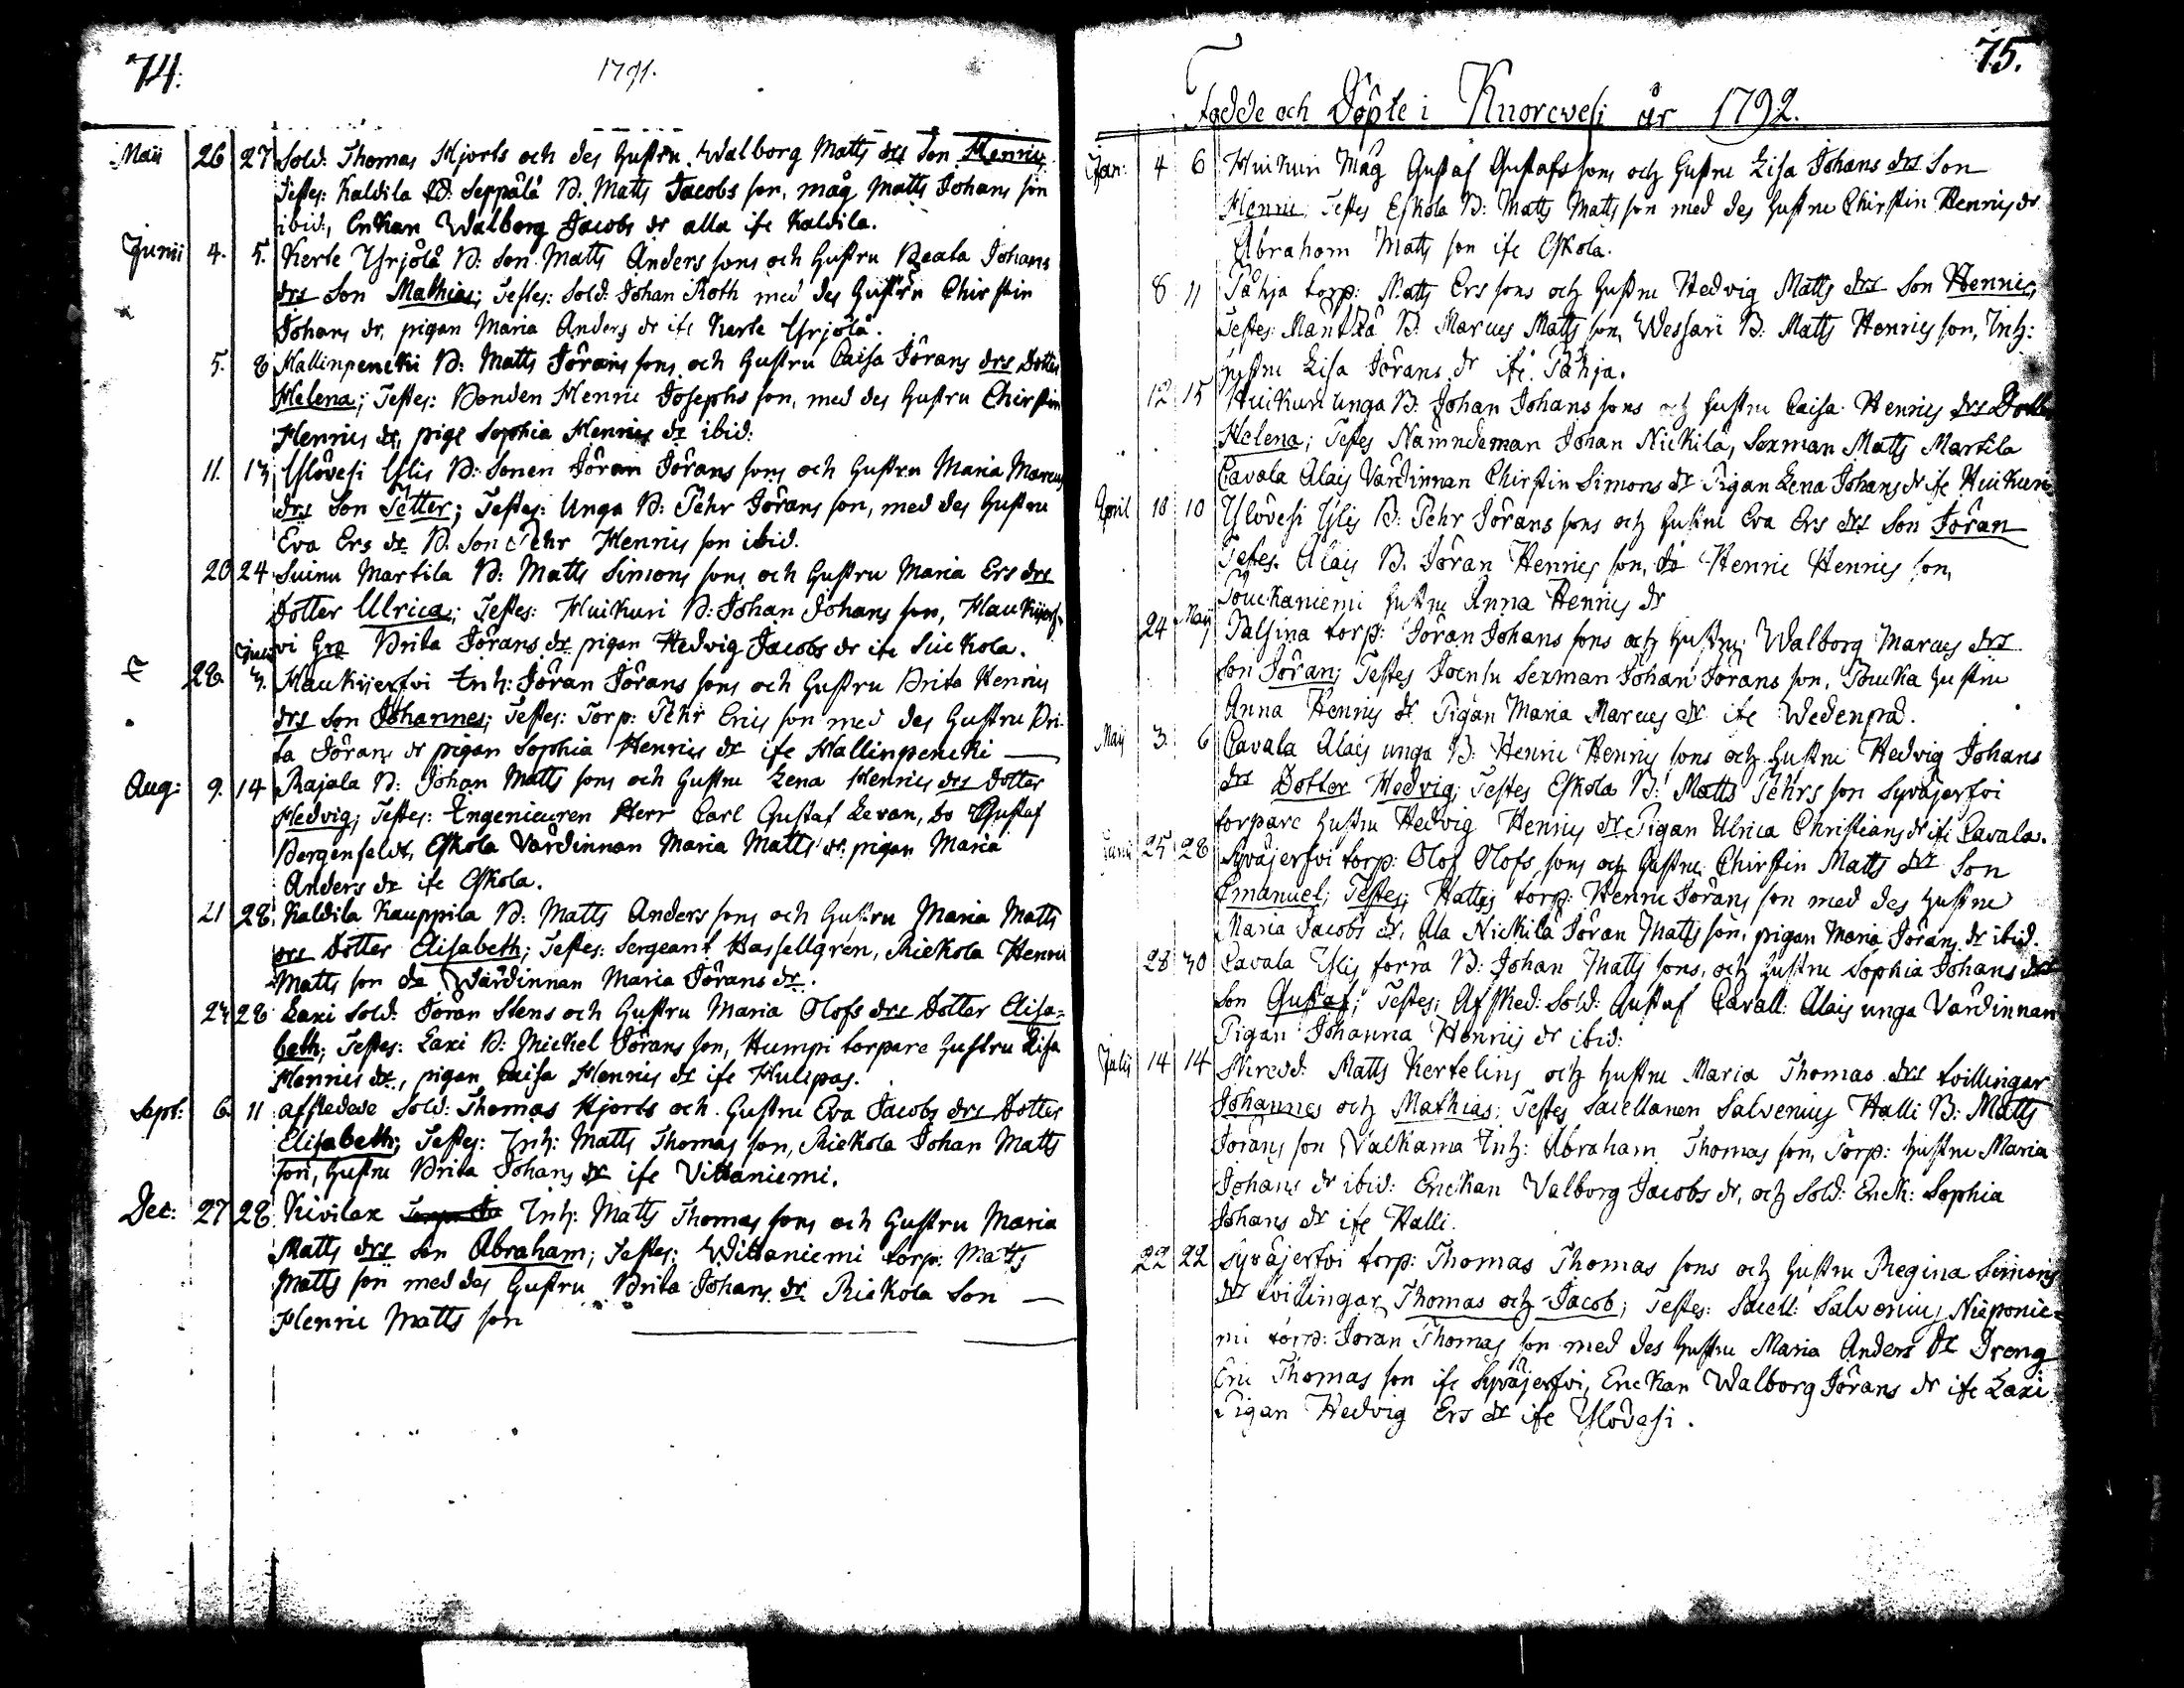 74.
1791.
Maii 26 27 Sold: Thomas Hjorts och des Hustru Walborg Matts drs Son Henric
Testes: Kaldila Seppälä B. Matts Jacobs son, måg Matts Johans son
ibid:, Enkan Walborg Jacobs dr alla ifr Kaldila.
Junii 4. 5. Kerte Yrjölä B: Son Matts Anders sons och Hustru Beata Johans
drs Son Mathias; Testes: Sold: Johan Roth med des Hustru Chirstin
Johans dr, pigan Maria Anders dr ifr Kerte Yrjölä.
5. 8 Hallinpencki B: Matts Jörans sons och Hustru Caisa Jörans drs Dotter
Helena; Testes: Bonden Henric Josephs son, med des Hustru Chirstin
Henrics dr, pige Sophia Henrics dr ibid:
11. 13 Ylövesi Ylis B: Sonen Jöran Jörans sons och Hustru Maria Marcus
drs Son Petter; Testes: Unga B: Pehr Jörans son, med des Hustru
Eva Ers dr B. Son Pehr Henrics son ibid.
20 24 Suinu Martila B: Matts Simons sons och Hustru Maria Ers drs
Dotter Ulrica; Testes: Huikuri B: Johan Johans son, Haukijerf-
vi Brita Jörans dr pigan Hedvig Jacobs dr ifr Suckola.
28 Julii 3. Haukijerfvi Inh: Jöran Jörans sons och Hustru Brita Henrics
drs Son Johannes; Testes: Torp: Pehr Erics son med des Hustru Bri-
ta Jörans dr pigan Sophia Henrics dr ifr Hallinpencki
Aug: 9. 14 Rajala B: Johan Matts sons och Hustru Lena Henrics drs Dotter
Hedvig; Testes: Ingenieuren Herr Carl Gustaf Levan, Do Gustaf
Bergenfeldt, Eskola Värdinnan Maria Matts dr pigan Maria
Anders dr ifr Eskola.
21 28. Kaldila Kauppila B: Matts Anders sons och Hustru Maria Matts
drs Dotter Elisabeth; Testes: Sergeant Hassellgren, Riekola Henric
Matts son Wärdinnan Maria Jörans dr.
23 28 Laxi Sold: Jöran Stens och Hustru Maria Olofs drs Dotter Elisa-
beth; Testes: Laxi B: Mickel Jörans son, Humpi torpare hustru Lisa
Henrics dr, pigan Caisa Henrics dr ifr Hulipas.
Sept: 6. 11 afskedade Sold: Thomas Hjorts och Hustru Eva Jacobs drs Dotter
Elisabeth; Testes: Inh: Matts Thomas son, Riekola Johan Matts
son, Hustru Brita Johans dr ifr Vittaniemi.
Dec: 27 28 Kivilax Inh: Matts Thomas sons och Hustru Maria
Matts drs Son Abraham; Testes: Wittaniemi torp: Matts
Matts son med des Hustru Brita Johans dr Riekola Son
Henric Matts son
75.
Födde och Döpte i Kuorevesi år 1792.
Jan: 4 6 Huikuri Måg Gustaf Gustafs sons och Hustru Lisa Johans drs Son
Henric; Testes Eskola B: Matts Matts son med des hustru Chirstin Henrics dr
Abraham Matts son ifr Eskola.
8 11 Pähja torp: Matts Ers sons och hustru Hedvig Matts drs Son Henric,
Testes: Mäntkä B: Marcus Matts son, Wessari B: Matts Henrics son, Inh:
hustru Lisa Jörans dr ifr Pähja.
12 15 Huikuri unga B: Johan Johans sons och hustru Caisa Henrics drs Dotter
Helena; Testes Nämndeman Johan Nickilä, Sexman Matts Martila
Cavala Alais Värdinnan Chirstin Simons dr Pigan Lena Johans dr ifr Huikuri
April 10 10 Ylövesi Ylis B: Pehr Jörans sons och hustru Eva Ers drs Son Jöran
Testes. Alais B. Jöran Henrics son, do Henric Henrics son,
Pouckaniemi hustru Anna Henrics dr
24 Maij Palsina torp: Jöran Johans sons och hustru Walborg Marcus drs
Son Jöran; Testes Joensu Sexman Johan Jörans son, Poucka hustru
Anna Henrics dr Pigan Maria Marcus dr ifr Wedenpä.
Maij 3. 6 Cavala Alais unga B: Henric Henrics sons och hustru Hedvig Johans
drs Dotter Hedvig; Testes Eskola B: Matts Pehrs son Syväjerfvi
torpare hustru Hedvig Henrics dr Pigan Ulrica Christians dr ifr Cavala.
Junii 25 28 Syväjerfvi torp: Olof Olofs sons och hustru Chirstin Matts drs Son
Emanuel; Testes; Hattus torp: Henric Jörans son med des hustru
Maria Jacobs dr, Ala Nickilä Jöran Matts son, pigan Maria Jörans dr ibid.
28 30 Cavala Ylis förra B: Johan Matts sons, och hustru Sophia Johans drs
Son Gustaf; Testes; Afsked: Sold: Gustaf Cavall: Alais unga Värdinnan
Pigan Johanna Henrics dr ibid:
Julii 14 14 Skredd: Matts Kertelins och hustru Maria Thomas drs tvillingar
Johannes och Mathias; Testes Sacellanen Salvenius Halli B: Matts
Jörans son Valkama Inh: Abraham Thomas son, Torp: hustru Maria
Johans dr ibid: Enckan Valborg Jacobs dr, och Sold: Enck: Sophia
Johans dr ifr Halli.
22 22 Syväjerfvi torp: Thomas Thomas sons och hustru Regina Simons
dr tvillingar Thomas och Jacob; Testes: Sacell: Salvenius, Niäponie-
mi torp: Jöran Thomas son med des hustru Maria Anders dr Dreng
Eric Thomas son ifr Syväjerfvi, Enckan Walborg Jörans dr ifr Laxi
Pigan Hedvig Ers dr ifr Ylövesi.